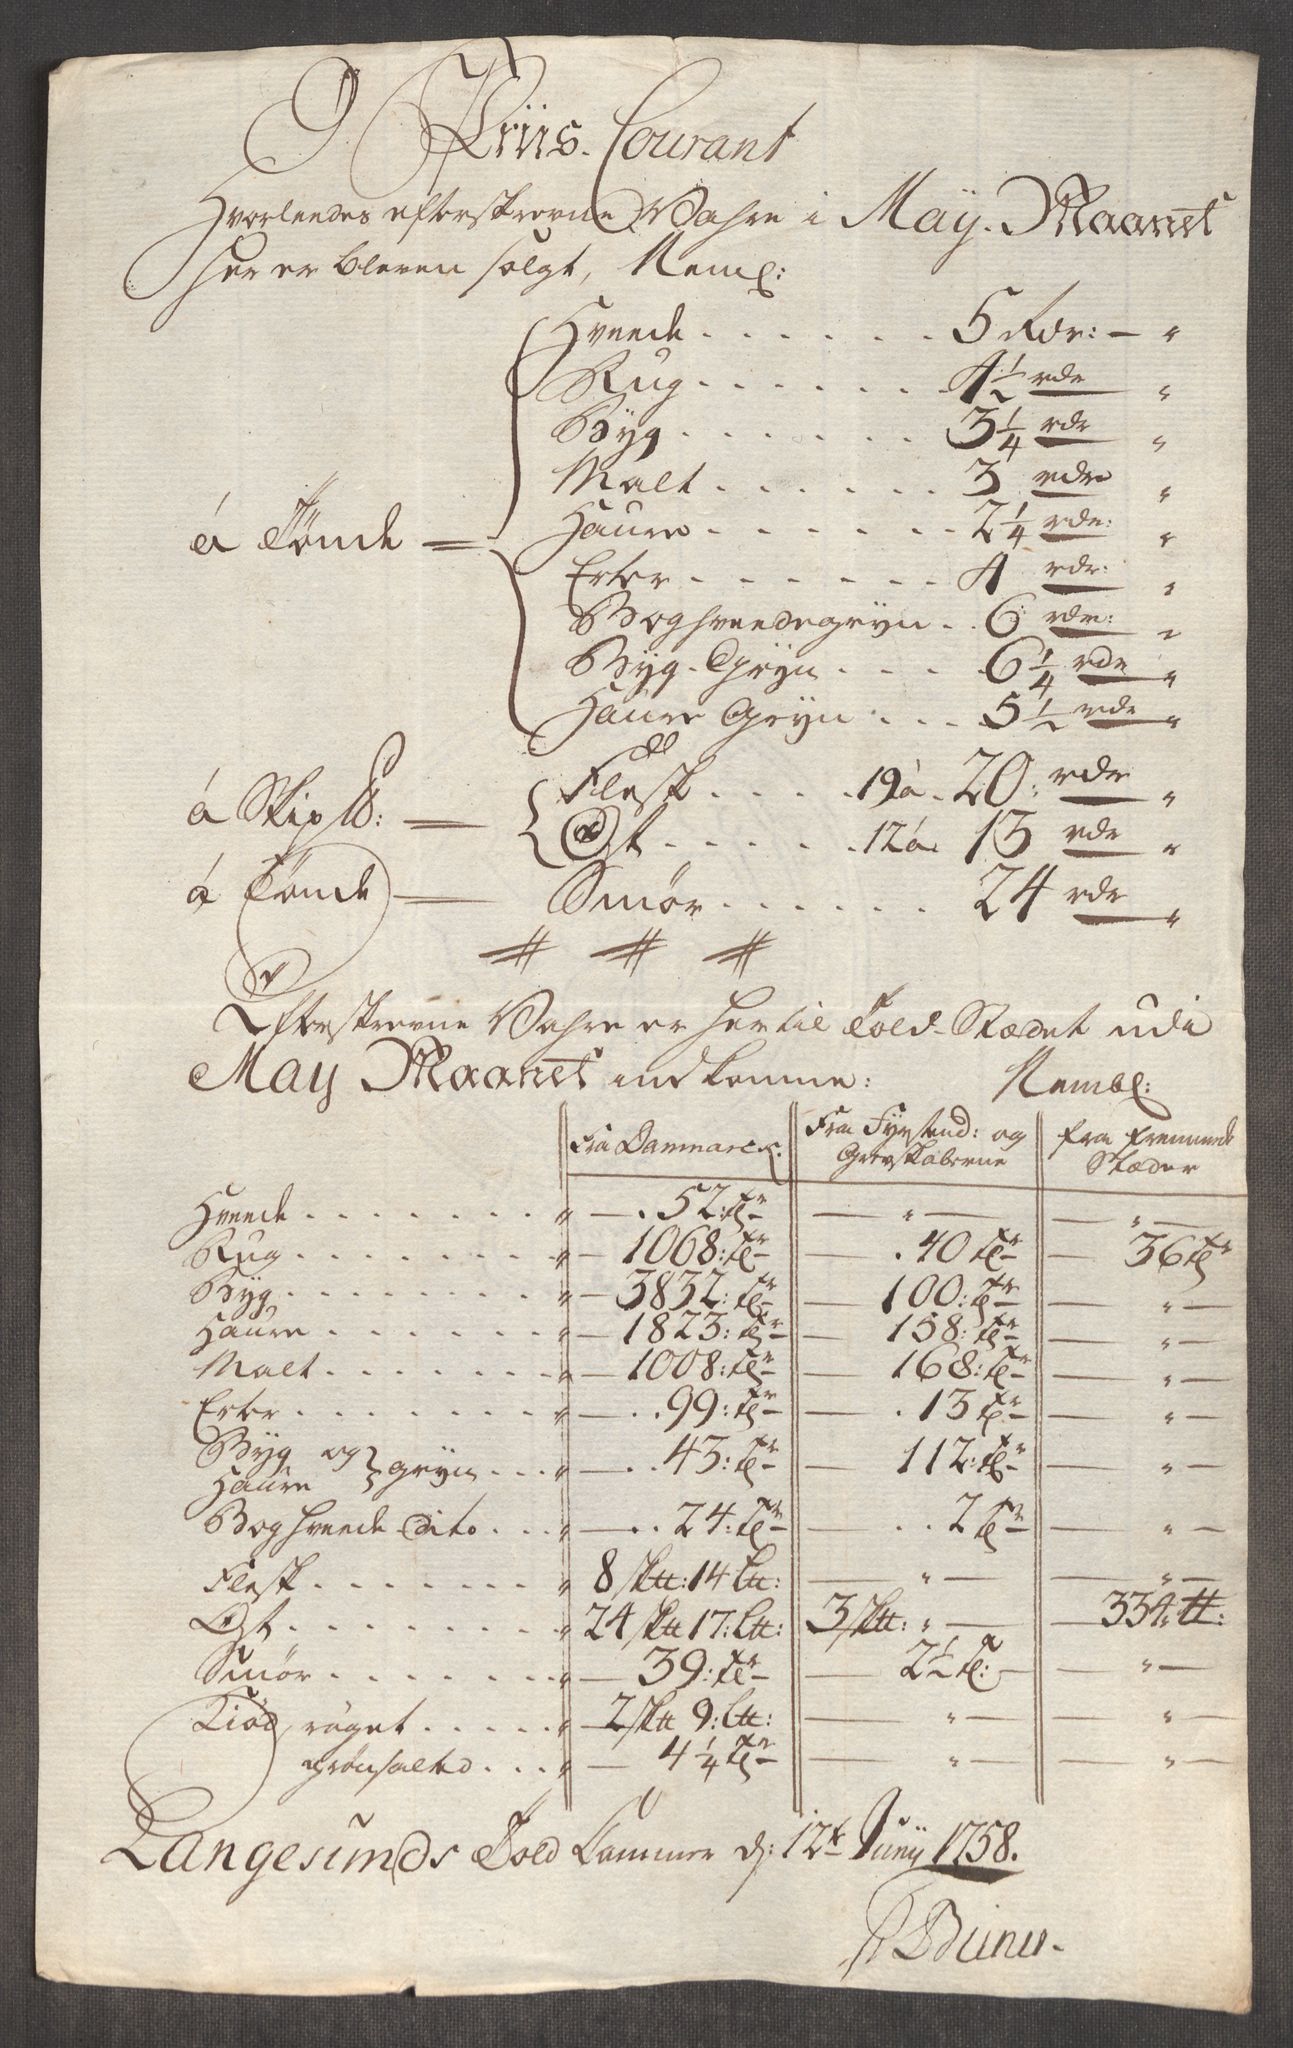 Priis. Courant
Hvorleedes efterskrevne Vahre i Maÿ. Maanet
her er bleven solgt, Neml:
á Tønde =
Hveede . . . . . . 5 Rdr: — "
Rug . . . . . . 4½ rdr "
Byg . . . . . . 3¼ rdr "
Malt . . . . . . 3 rdr "
Haure . . . . . . 2¼ rdr: "
Erter . . . . . . 4 rdr: "
Boghveedegryn . . 6 rdr: "
Byg-Gryn . . . . 6¼ rdr "
Haure Gryn . . . 5½ rdr "
á Skip℔: =
Flesk . . . . 19 á . 20: rdr "
Ost . . . . . . 12 á . 13 rdr "
á Tønde = Smør . . . . . . 24 rdr "
Efterskrevne Vahre er her til Told-Stædet udi
May Maanet indkomne: Nembl:
Fra Danmarck: Fra Fyrstend: og Grevskaberne fra fremmede Stæder
Hveede . . . . . . . " — . 52: tr — — " — — " —
Rug . . . . . . . . " — 1068: tr — — . 40 tr — — 36 tr
Byg . . . . . . . . " — 3832: tr — — 100: tr — — " —
Haure . . . . . . . " — 1823: tr — — 158: tr — — " —
Malt . . . . . . . . " — 1008: tr — — 168: tr — — " —
Erter . . . . . . . . " — . . 99: tr — — . 13 tr — — " —
Byg og Haure } gryn . . . " — . . 43: tr — — 112: tr — — " —
Boghveede Dito . . . " — . . 24: tr — — . . 2 tr — — " —
Flesk . . . . . . . " 8 sk℔: 14 L℔: — " — — " —
Ost . . . . . . . . " 24 sk℔ 17: L℔: 3 sk℔: " — — 334: ℔:
Smør . . . . . . . " — 39: tr — — 2½ t: — — " —
Kiød, røget . . . . . " — 2 sk℔ 9: L℔: — " — — " —
grønsalted . . . " — 4¼ tr — — " — — " —
Langesunds Told Cammer d: 12te Junÿ 1758.